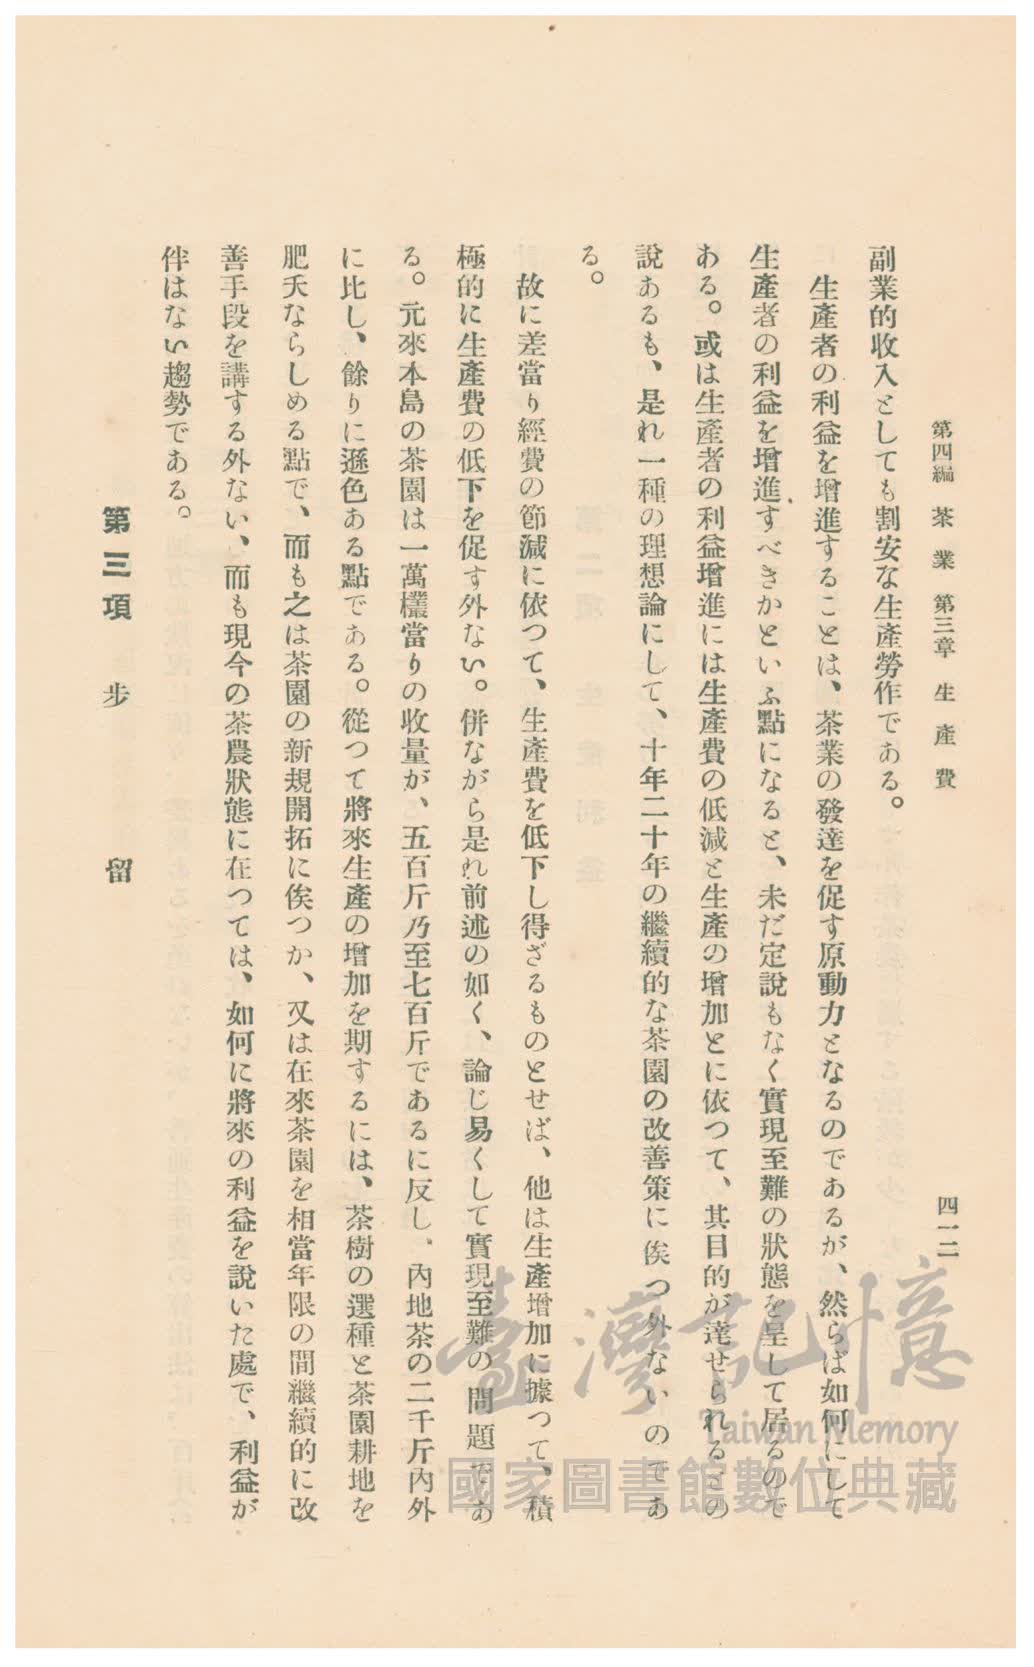 第四編 茶業 第三章 生產費
四一二
副業的收入としても割安な生產勞作である。
生產者の利益を增進することは、茶業の發達を促す原動力となるのであるが、然らば如何にして
生產者の利益を增進すべきかといふ點になると、未だ定說もなく實現至難の狀態を呈して居るので
ある。或は生產者の利益增進には生產費の低減と生產の增加とに依つて、其目的が達せられるとの
說あるも、是れ一種の理想論にして、十年二十年の繼續的な茶園の改善策に俟つ外ないのであ
る。
故に差當り經費の節減に依つて、生產費を低下し得ざるものとせば、他は生產增加に據つて、積
極的に生產費の低下を促す外ない。併ながら是れ前述の如く、論じ易くして實現至難の問題であ
る。元來本島の茶園は一萬欉當りの收量が、五百斤乃至七百斤であるに反し、內地茶の二千斤內外
に比し、餘りに遜色ある點である。從つて將來生產の增加を期するには、茶樹の選種と茶園耕地を
肥夭ならしめる點で、而も之は茶園の新規開拓に俟つか、又は在來茶園を相當年限の間繼續的に改
善手段を講する外ない、而も現今の茶農狀態に在つては、如何に將來の利益を說いた處で、利益が
伴はない趨勢である。
第三項 步留
臺灣記憶
Taiwan Memory
國家圖書館數位典藏